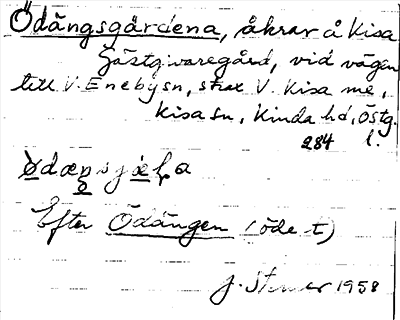 Ödängsgärdena, åkrar å Kisa
Gästgivaregård, vid vägen
till V. Enebysn, strax V. Kisa me,
Kisa sn, Kinda hd, Östg.
284 l.
Efter Ödängen (öde-t)
J. 1958